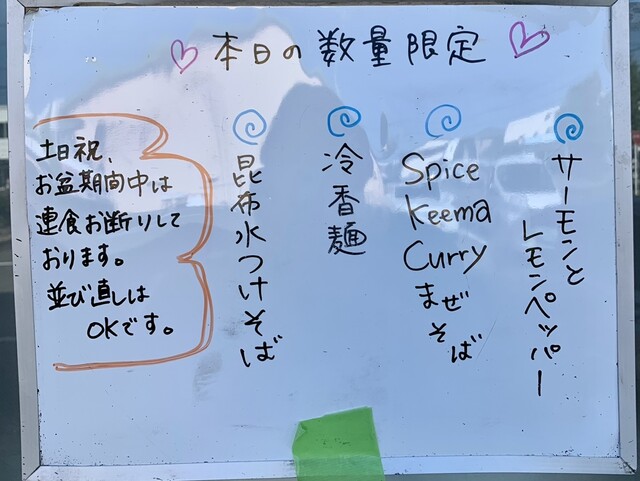 本日の数量限定
サーモンと
レモンペッパー
Spice
Keema
Curry
まぜそば
冷香麺
昆布水つけそば
土日祝、
お盆期間中は
連食お断りして
おります。
並び直しは
OKです。